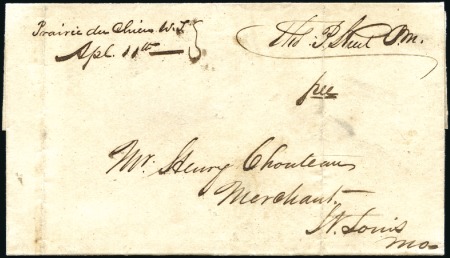 Prairie du Chien W.T.
Apl. 11th
Tho. P. Street Pm.
free
Mr. Henry Chouteau
Merchant
St. Louis
Mo